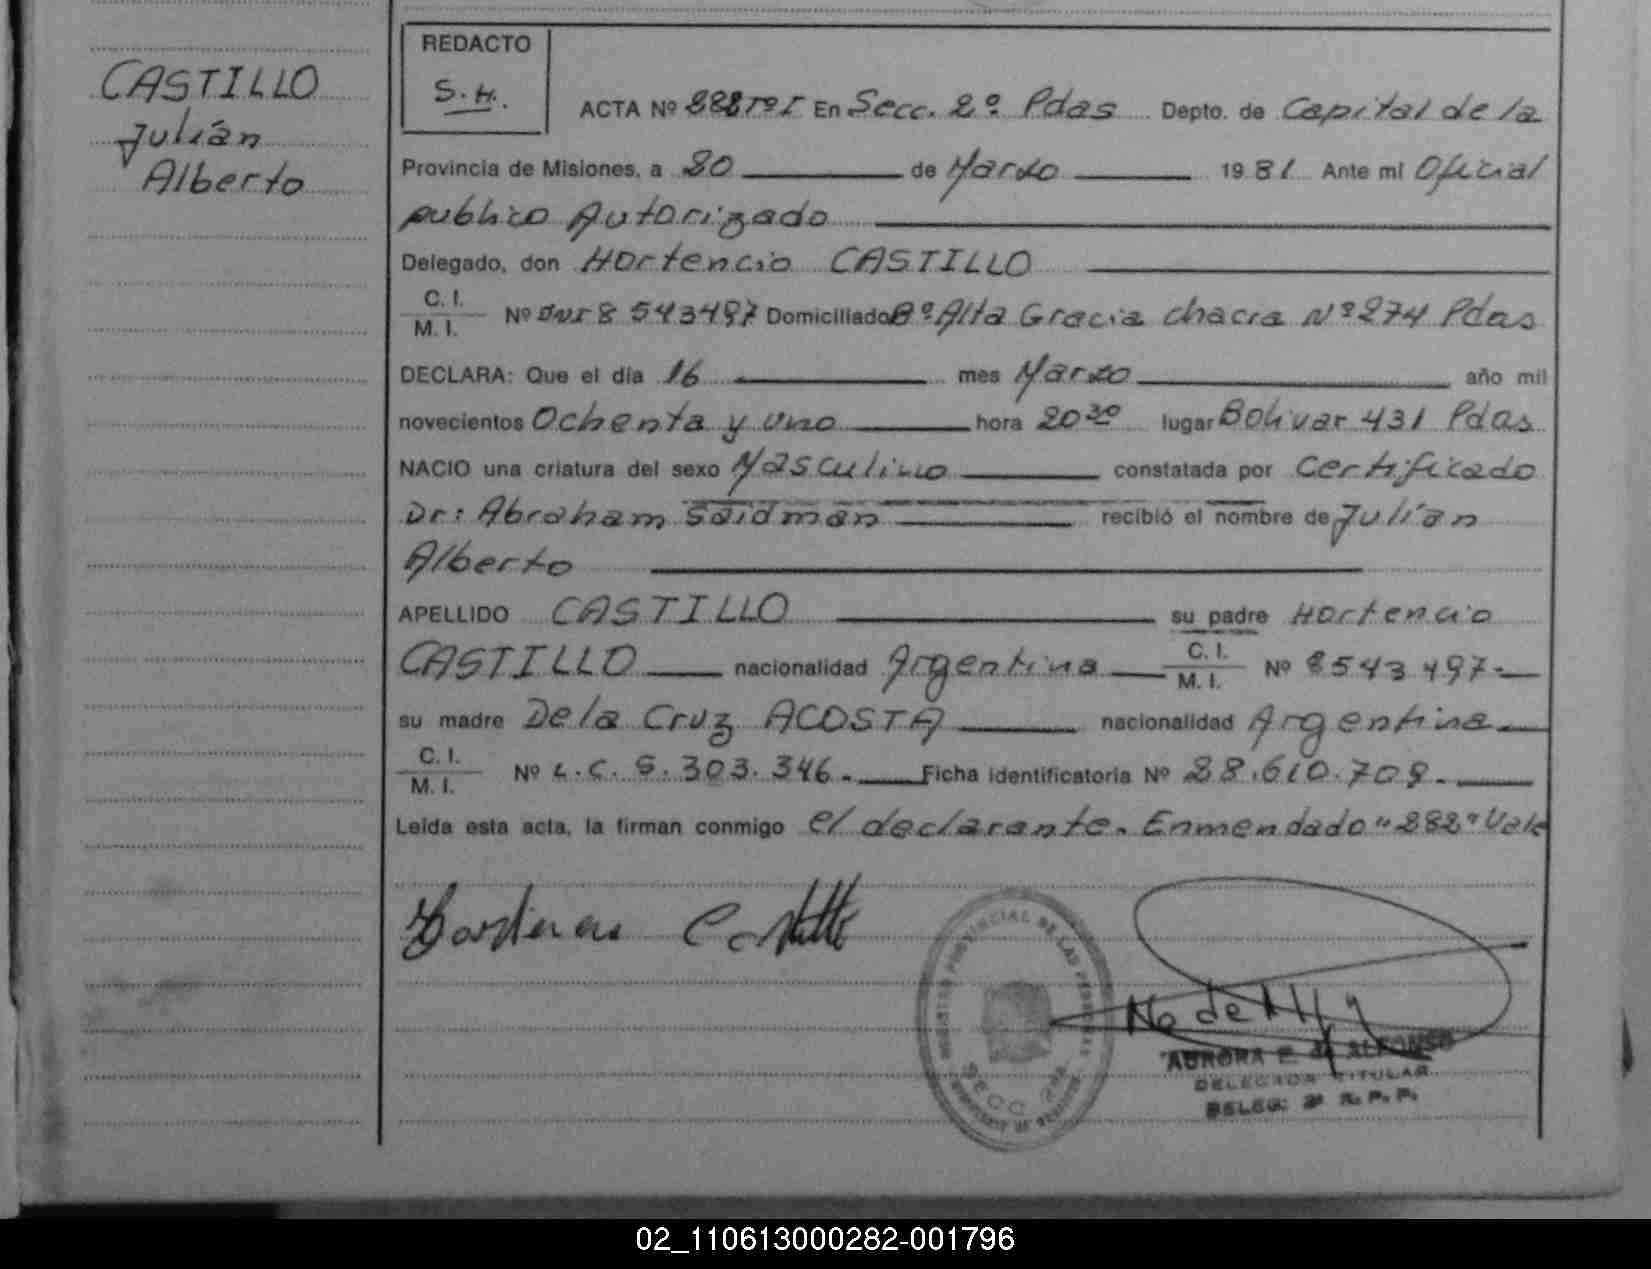 CASTILLO
Julián
Alberto
REDACTO
S.H.
ACTA Nº 282 Tº I En Secc. 2º Pdas Depto. de Capital de la
Provincia de Misiones, a 20 de Marzo 1981 Ante mi Oficial
publico Autorizado
Delegado, don Hortencio CASTILLO
C. I.
M. I. Nº DNI 8 543497 Domiciliado Bº Alta Gracia chacra Nº 274 Pdas
DECLARA: Que el día 16 mes Marzo año mil
novecientos Ochenta y uno hora 20 30 lugar Bolivar 431 Pdas
NACIO una criatura del sexo Masculino constatada por Certificado
Dr: Abraham Saidman recibió el nombre de Julián
Alberto
APELLIDO CASTILLO su padre Hortencio
CASTILLO nacionalidad Argentina C. I. M. I. Nº 8543497-
su madre De la Cruz ACOSTA nacionalidad Argentina
C. I.
M. I. Nº L.C. 303.346. Ficha identificatoria Nº 28.610.709.
Leída esta acta, la firman conmigo el declarante. Enmendado "282" Vale
AURORA E. de ALFONSO
DELEGADA TITULAR
DELEG. 2ª R.P.P.
REGISTRO PROVINCIAL DE LAS PERSONAS
SECC 2da
02_110613000282-001796